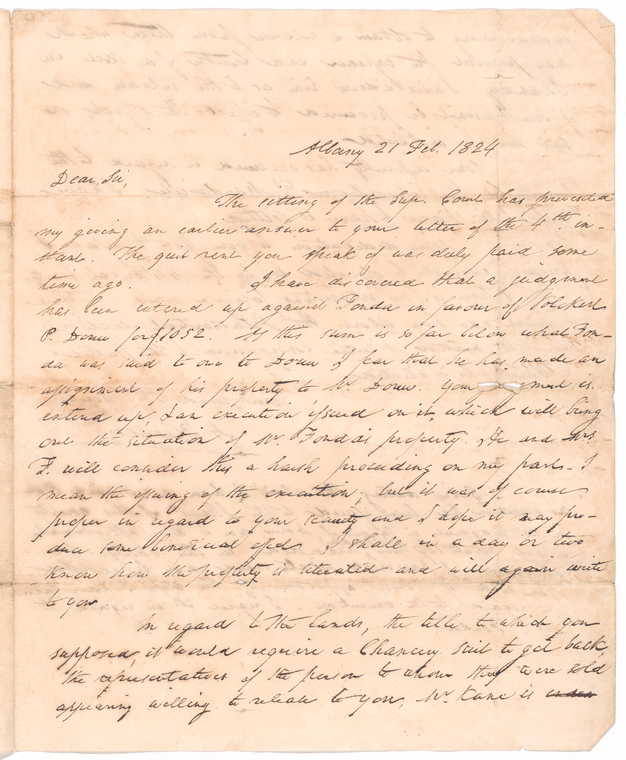 Albany 21 Feb. 1824
Dear Sir,
The sitting of the Sup. Court has prevented
my giving an earlier answer to your letter of the 4th in-
stant. The quit rent you speak of was duly paid some
time ago. I have discovered that a judgment
has been entered up against Fonda in favour of Volckert
P. Douw for $1052. As this sum is so far below what Fon-
da was said to owe to Douw I fear that he has made an
assignment of his property to Mr. Douw. Your judgment is
entered up, & an execution issued on it, which will bring
out the situation of Mr. Fonda's property. He and Mrs.
F. will consider this a harsh proceeding on my part - I
mean the issuing of the execution; but it was of course
proper in regard to your security and I hope it may pro-
duce some beneficial effects. I shall in a day or two
know how the property is situated and will again write
to you
In regard to the lands, the title to which you
supposed it would require a Chancery suit to get back,
the representatives of the person to whom they were sold
appearing willing to release to you, Mr. Kane is